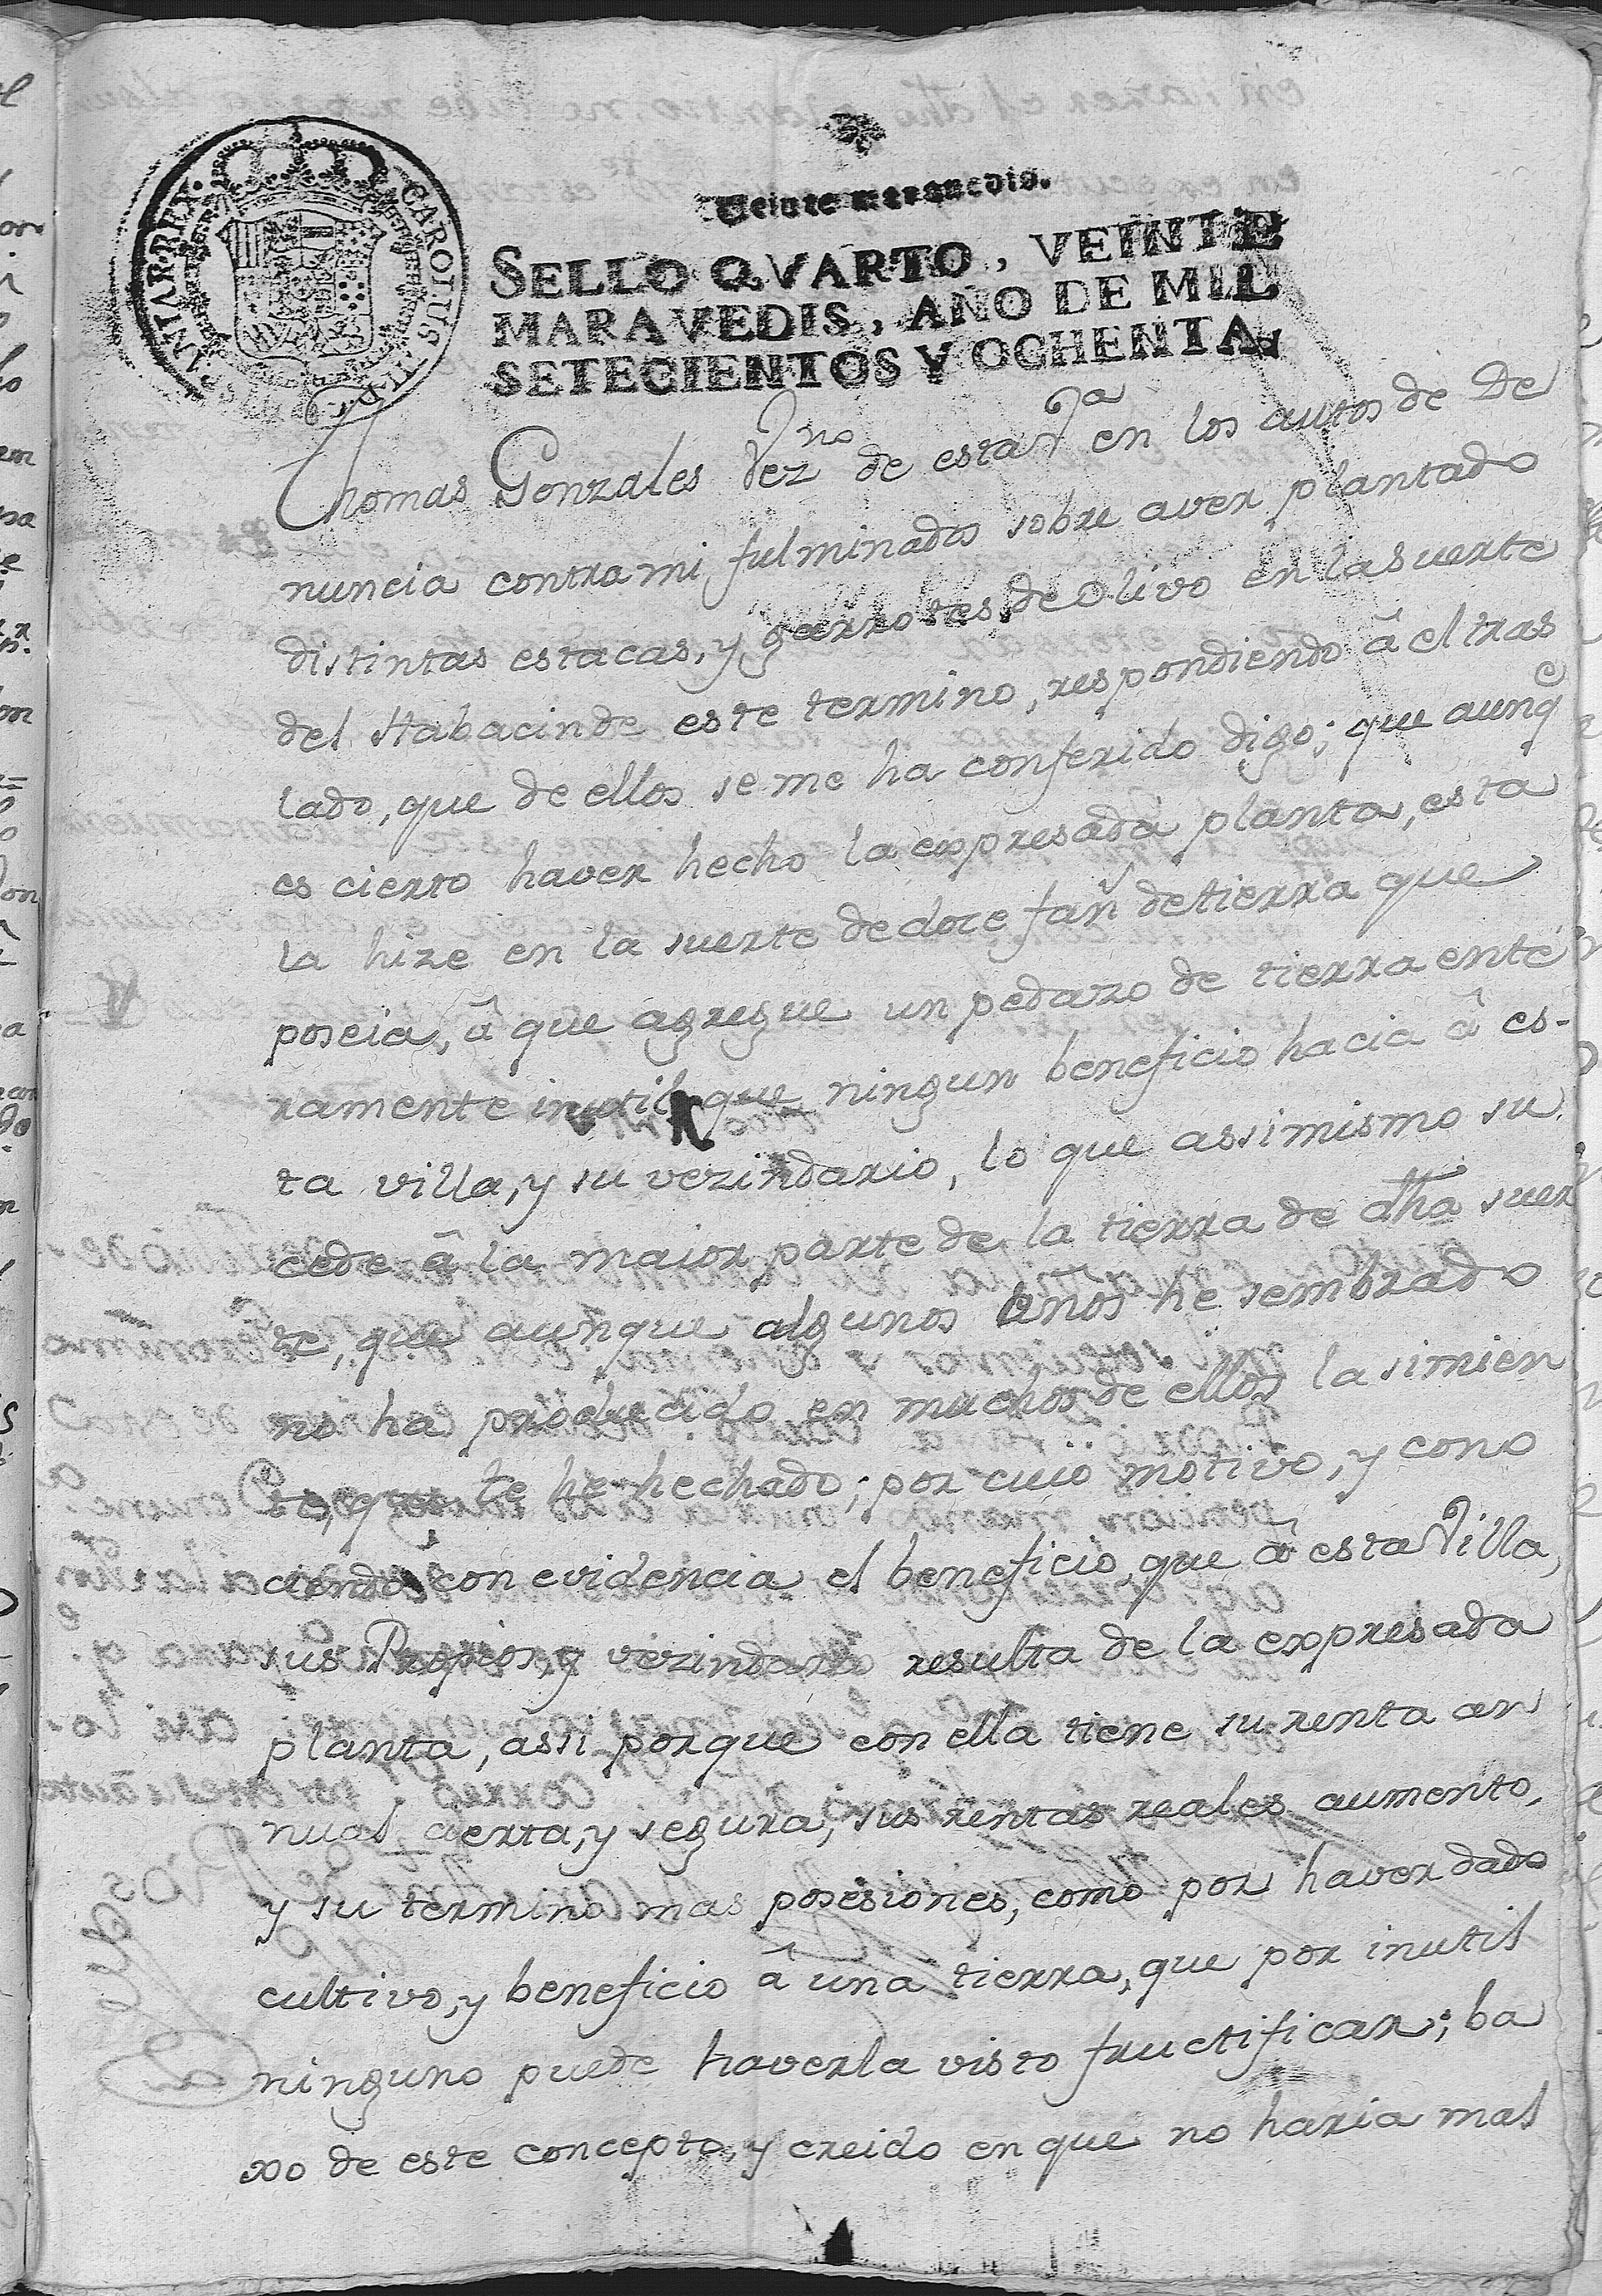 CAROLUS III D. G. HISPANIAR. REX.
Veinte marauedis.
SELLO QVARTO, VEINTE
MARAVEDIS, AÑO DE MIL
SETECIENTOS Y OCHENTA.
Thomas Gonzales Vezno de esta Va en los autos de De
nuncia contra mi fulminados sobre aver plantado
distintas estacas, y garrotes de Olivo en la suerte
del Habacin de este termino, respondiendo â el tras
lado, que de ellos se me ha conferido digo; que aunqe
es cierto haver hecho la expresada planta, esta
la hize en la suerte de doce fañ de tierra que
poseia, â que agregue un pedazo de tierra ente
ramente inutil que ningun beneficio hacia â es-
ta villa, y su vezindario, lo que assimismo su
cede â la maior parte de la tierra de dha suer
te, que aunque algunos años he sembrado
no ha producido en muchos de ellos la simien
te, que le he hechado; por cuio motivo, y cono
ciendo con evidencia el beneficio, que â esta Villa,
sus Propios, y vezindario resulta de la expresada
planta, assi porque con ella tiene su renta an
nual cierta, y segura, sus rentas reales aumento,
y su termino mas posesiones, como por haver dado
cultivo, y beneficio â una tierra, que por inutil
ninguno puede haverla visto fructificar; ba
xo de este concepto, y creido en que no haria mal